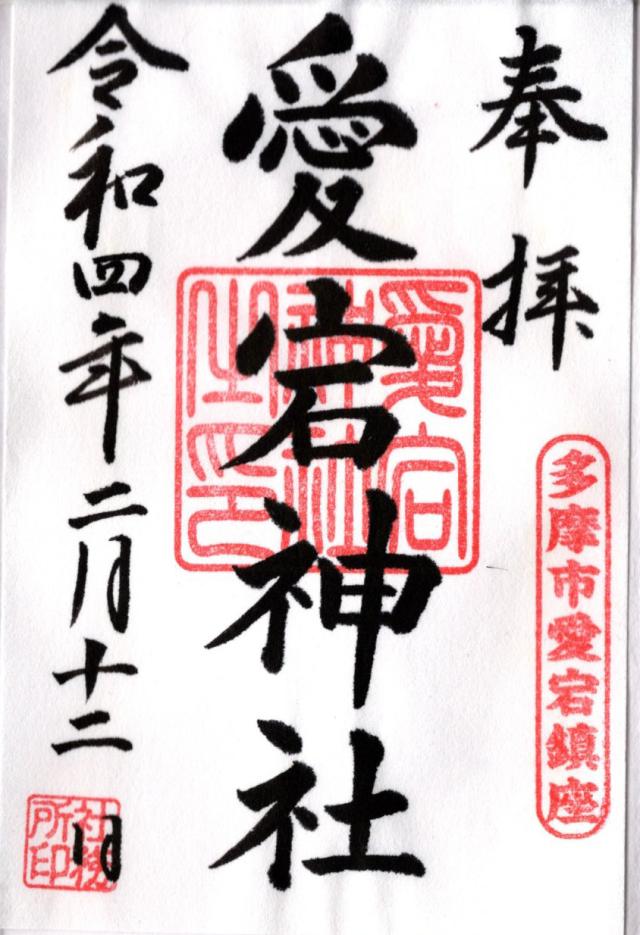 奉拝
多摩市愛宕鎮座
愛宕神社
愛宕
神社
之印
令和四年二月十二日
社務
所印